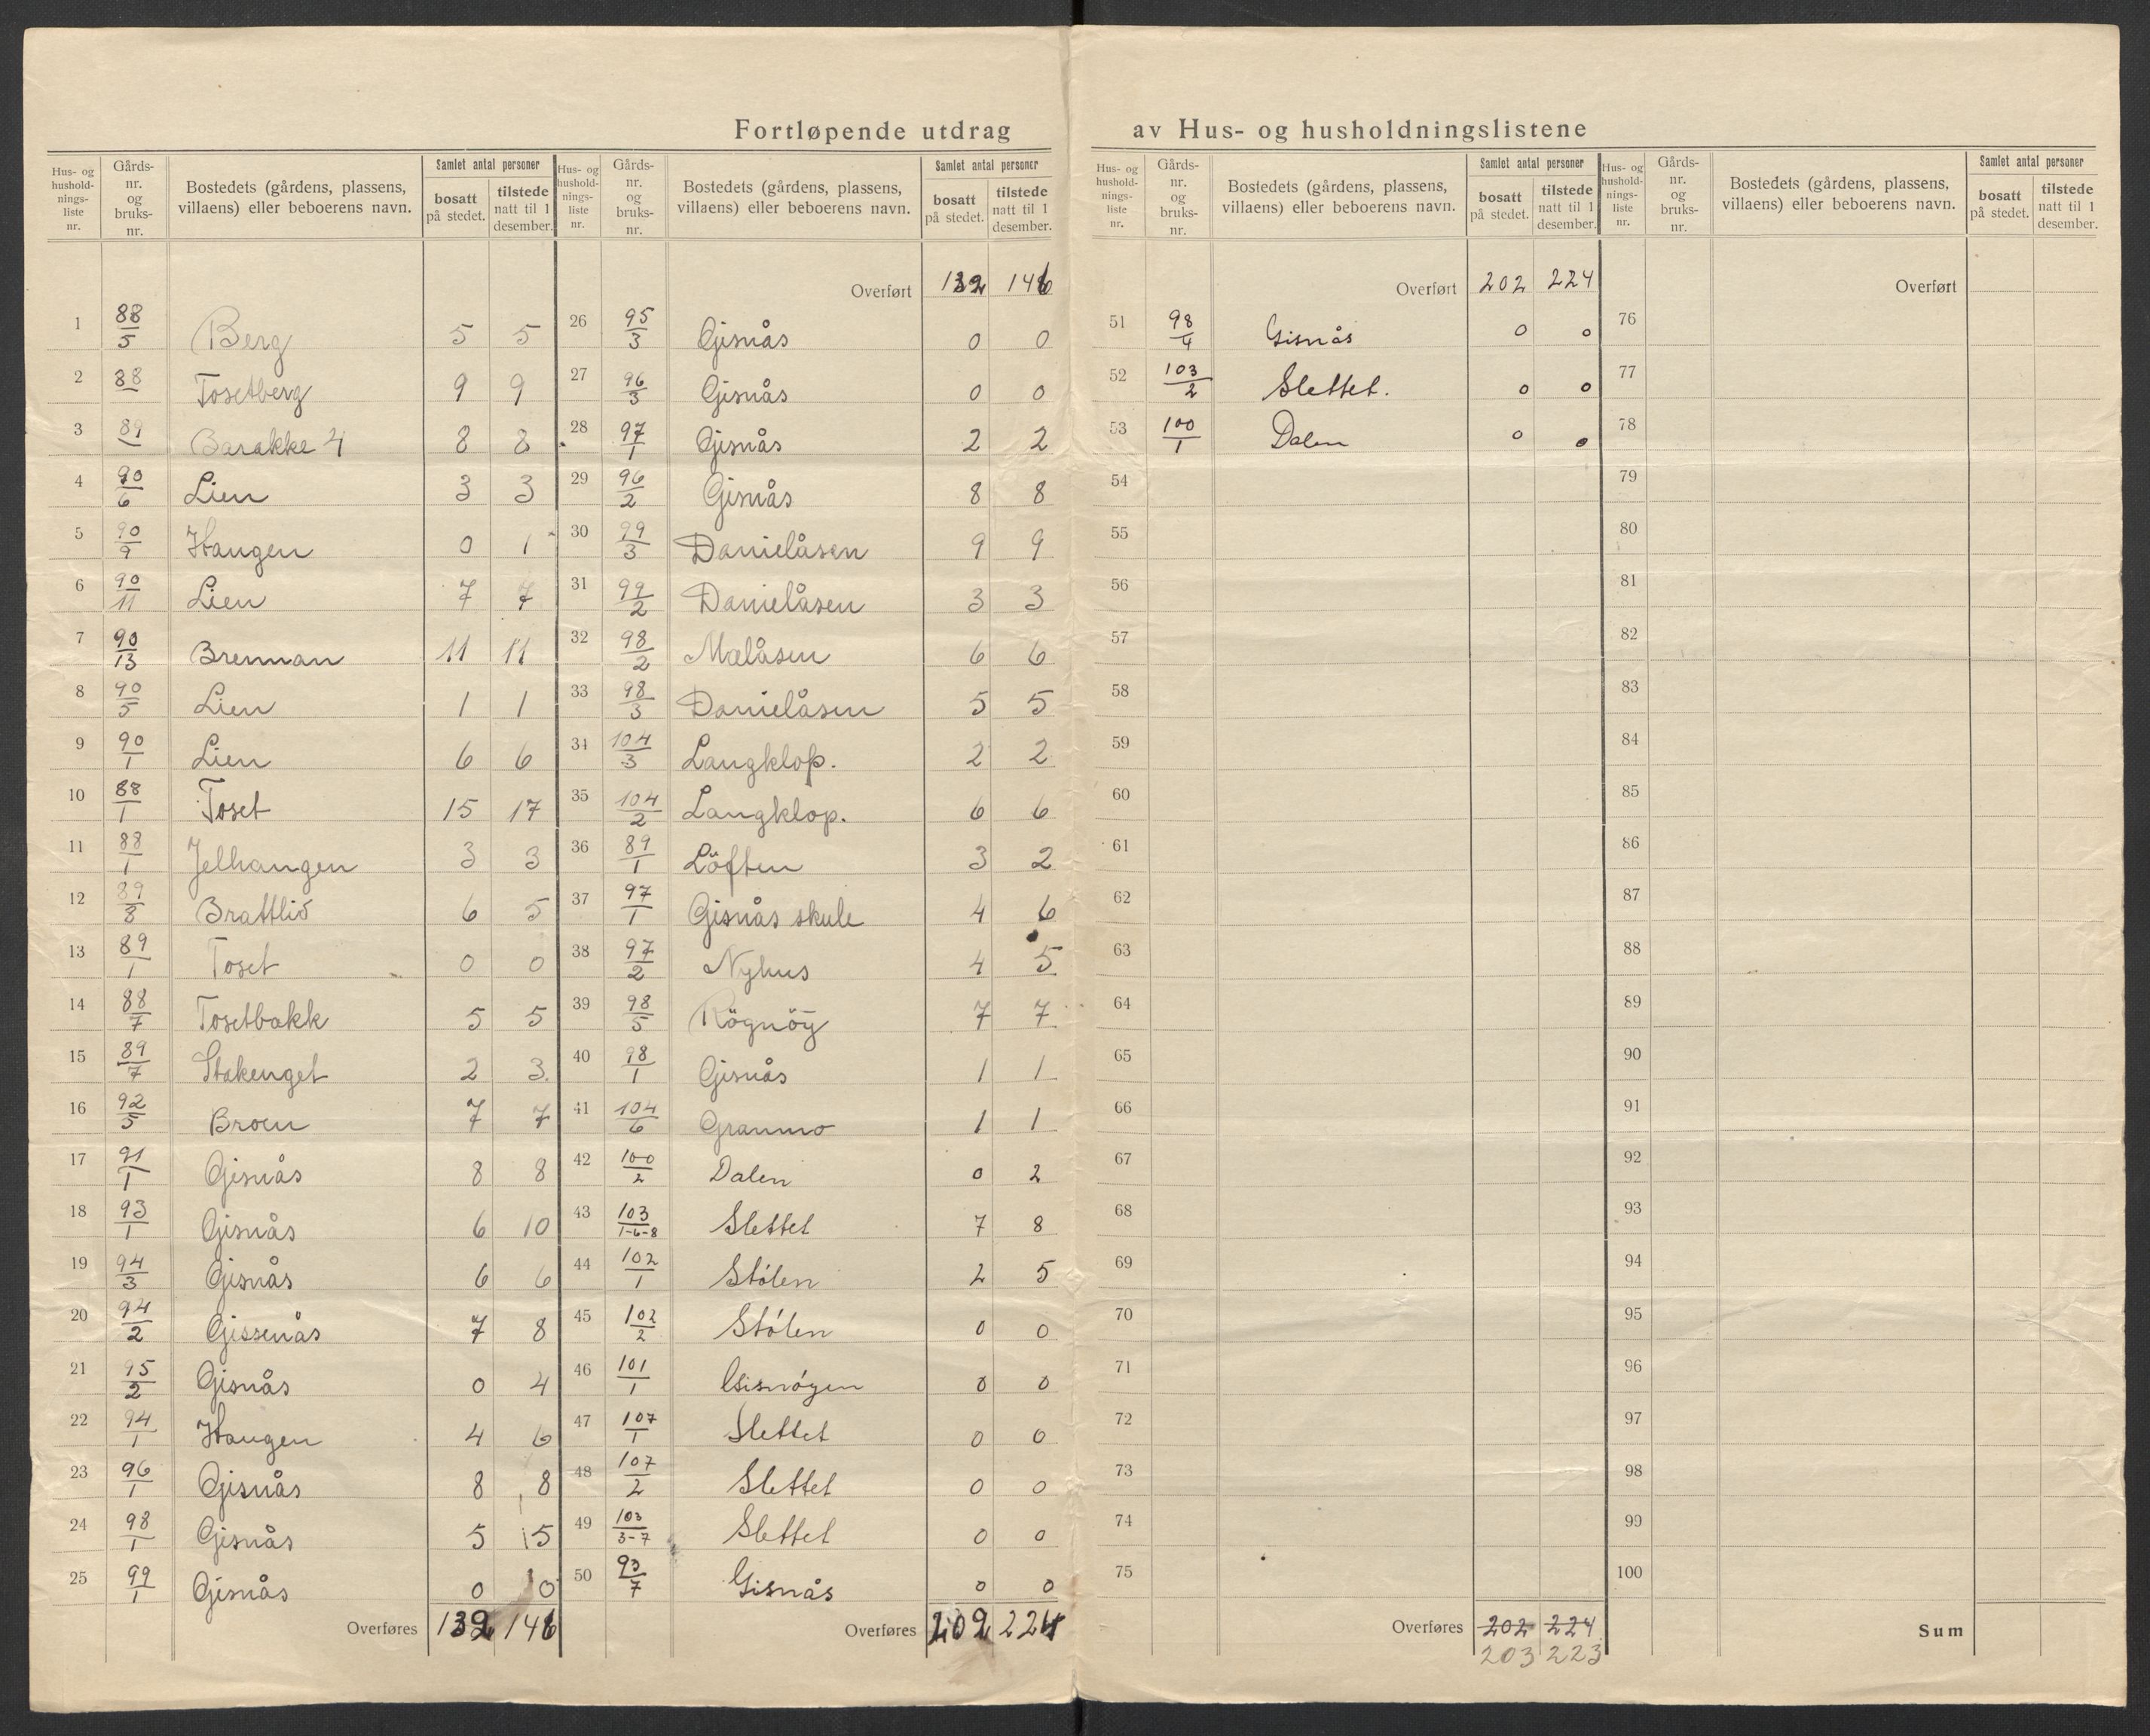 Fortløpende utdrag av Hus- og husholdningslistene
Hus- og hushold-nings-liste nr. Gårds-nr. og bruks-nr. Bostedets (gårdens, plassens, villaens) eller beboerens navn. Samlet antal personer bosatt på stedet. tilstede natt til 1 desember.
1 88/5 Berg 5 5
2 88 Tosetberg 9 9
3 89 Barakke 4 8 8
4 90/6 Lien 3 3
5 90/9 Haugen 0 1
6 90/11 Lien 7 7
7 90/13 Brennan 11 11
8 90/5 Lien 1 1
9 90/1 Lien 6 6
10 88/1 Toset 15 17
11 88/1 Jelhaugen 3 3
12 89/8 Brattlid 6 5
13 89/1 Toset 0 0
14 88/7 Tosetbakk 5 5
15 89/7 Stakenget 2 3
16 92/5 Broen 7 7
17 91/1 Gisnås 8 8
18 93/1 Gisnås 6 10
19 94/3 Gisnås 6 6
20 94/2 Gissenås 7 8
21 95/2 Gisnås 0 4
22 94/1 Haugen 4 6
23 96/1 Gisnås 8 8
24 98/1 Gisnås 5 5
25 99/1 Gisnås 0 0
Overføres 132 146
Hus- og hushold-nings-liste nr. Gårds-nr. og bruks-nr. Bostedets (gårdens, plassens, villaens) eller beboerens navn. Samlet antal personer bosatt på stedet. tilstede natt til 1 desember.
Overført 132 146
26 95/3 Gisnås 0 0
27 96/3 Gisnås 0 0
28 97/1 Gisnås 2 2
29 96/2 Gisnås 8 8
30 99/3 Danielåsen 9 9
31 99/2 Danielåsen 3 3
32 98/2 Malåsen 6 6
33 98/3 Danielåsen 5 5
34 104/3 Langklop. 2 2
35 104/2 Langklop. 6 6
36 89/1 Löften 3 2
37 97/1 Gisnås skule 4 6
38 97/2 Nyhus 4 5
39 98/5 Rögnöy 7 7
40 98/1 Gisnås 1 1
41 104/6 Granmo 1 1
42 100/2 Dalen 0 2
43 103/1-6-8 Slettet 7 8
44 102/1 Stólen 2 5
45 102/2 Stólen 0 0
46 101/1 Gisnógen 0 0
47 107/1 Slettet 0 0
48 107/2 Slettet 0 0
49 103/3-7 Slettet 0 0
50 93/7 Gisnås 0 0
Overføres 202 224
Hus- og hushold-nings-liste nr. Gårds-nr. og bruks-nr. Bostedets (gårdens, plassens, villaens) eller beboerens navn. Samlet antal personer bosatt på stedet. tilstede natt til 1 desember.
Overført 202 224
51 98/4 Gisnås 0 0
52 103/2 Slettet. 0 0
53 100/1 Dalen 0 0
54
55
56
57
58
59
60
61
62
63
64
65
66
67
68
69
70
71
72
73
74
75
Overføres 202 224
203 223
Hus- og hushold-nings-liste nr. Gårds-nr. og bruks-nr. Bostedets (gårdens, plassens, villaens) eller beboerens navn. Samlet antal personer bosatt på stedet. tilstede natt til 1 desember.
Overført
76
77
78
79
80
81
82
83
84
85
86
87
88
89
90
91
92
93
94
95
96
97
98
99
100
Sum